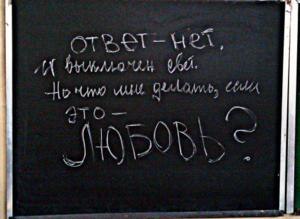 ОТВЕТ - НЕТ.
И выключен свет.
Но что мне делать, если
это -
ЛЮБОВЬ?